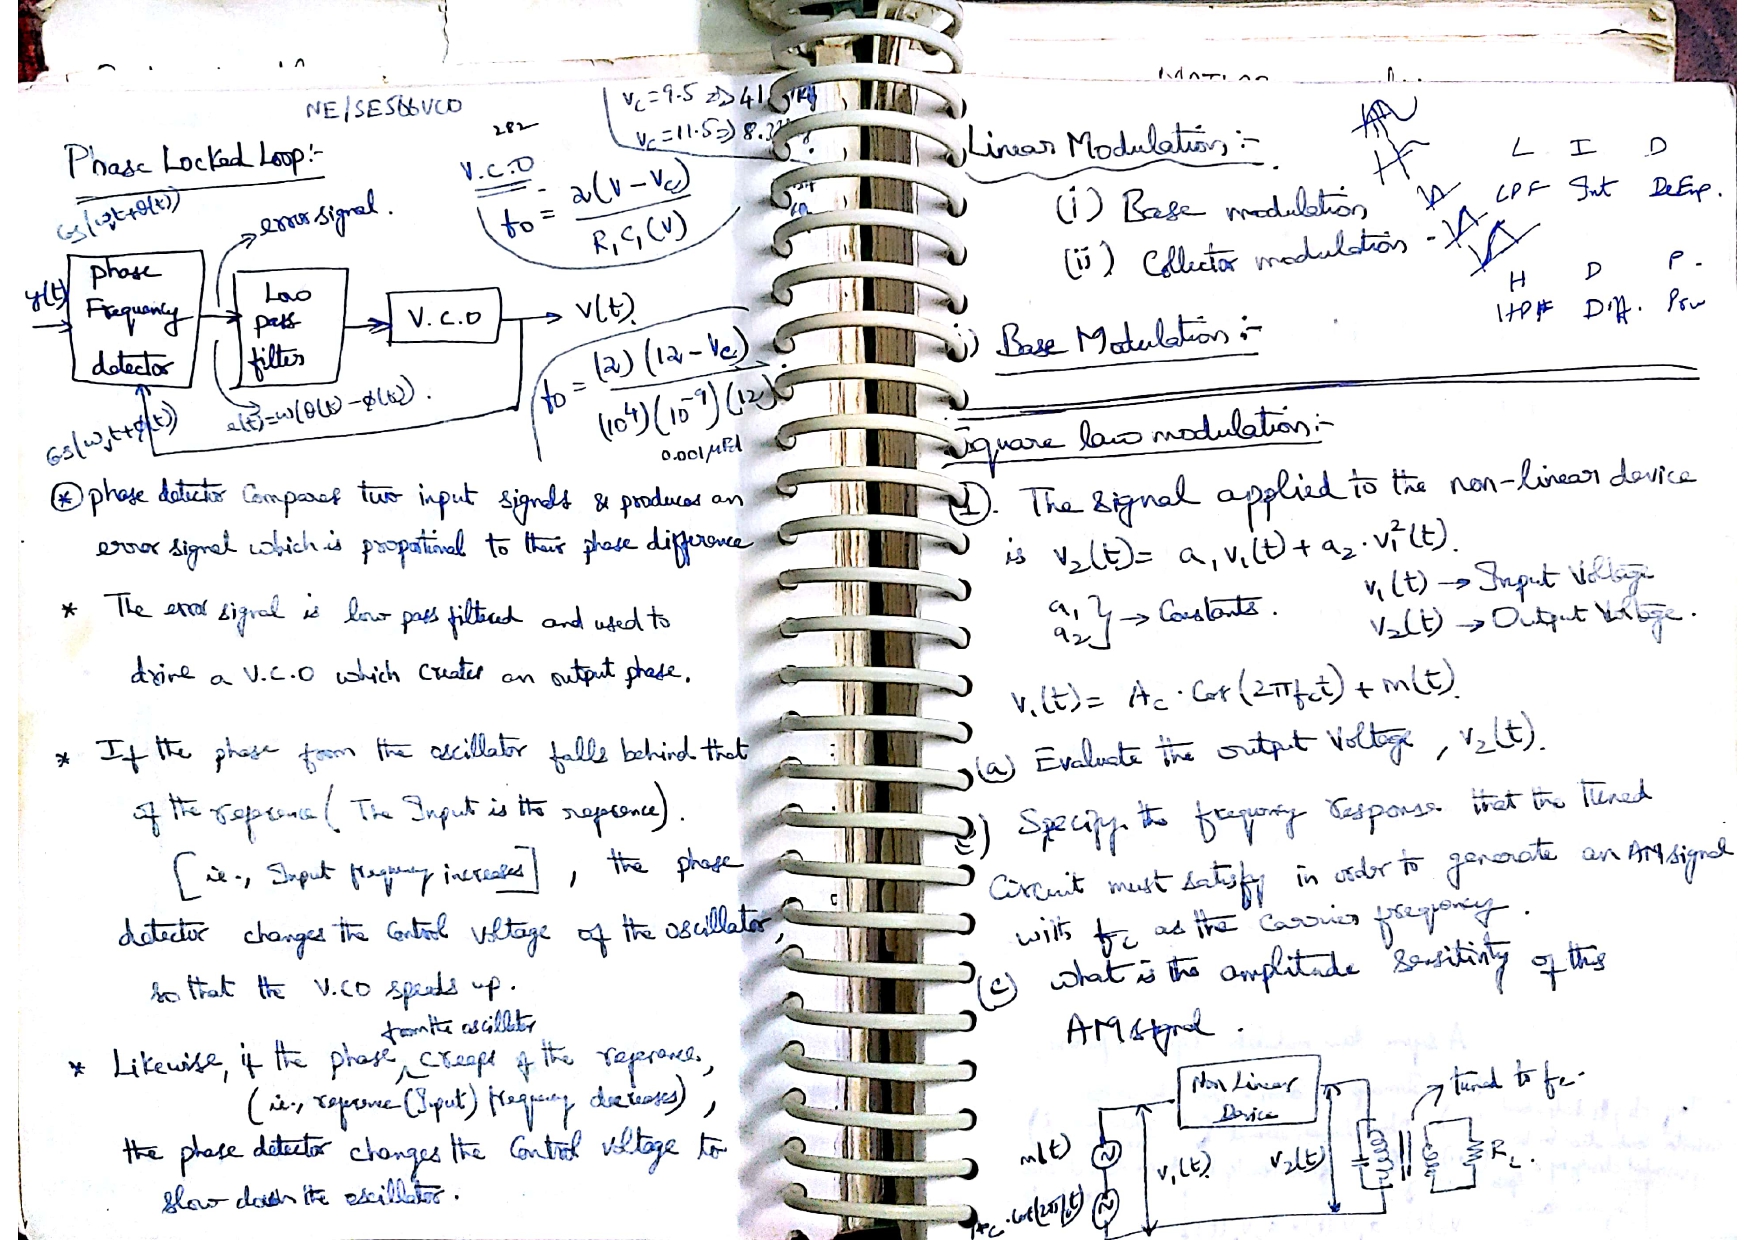 NE/SE566VCO
VC=9.5 => 41
VC=11.5=> 8.3
282
Phase Locked Loop:-
V.C.O
f0 = 2(V-VC) / R1C1(V)
Cos(ω1t+θ(t))
error signal.
y(t)
Phase
Frequency
detector
Low
pass
filter
V.C.O
v(t).
f0 = (2)(12-VC) / (10^4)(10^-9)(12)
0.001μFd
e(t)=w(θ(t)-φ(t)).
phase detector Compares two input signals & produces an
error signal which is propotional to their phase difference
* The error signal is low pass filtered and used to
drive a V.C.O which creates an output phase.
* If the phase from the oscillator falls behind that
of the reference (The Input is the reference).
[ie., Input frequency increases], the phase
detector changes the Control voltage of the oscillator,
so that the V.CO speeds up.
from the oscillator
* Likewise, if the phase creeps of the reference,
(ie., reference (Input) frequency decreases),
the phase detector changes the Control voltage to
slow down the oscillator.
Linear Modulation:-
(i) Base modulation
(ii) Collector modulation
L I D
LPF Int DeEmp.
H D P.
HPF Diff. Pre
i) Base Modulation:-
Square law modulation:-
1. The signal applied to the non-linear device
is v2(t)= a1v1(t) + a2.v1²(t).
a1
a2 } → Constants.
v1(t) → Input Voltage
v2(t) → Output Voltage.
v1(t)= Ac.Cos(2πfct) + m(t).
(a) Evaluate the output Voltage, v2(t).
Specify the frequency response that the Tuned
Circuit must satisfy in order to generate an AM signal
with fc as the Carrier frequency.
(c) what is the amplitude Sensitivity of this
AM signal.
Non Linear
Device
tuned to fc.
m(t)
v1(t)
v2(t)
RL.
Ac.Cos(2πfct)